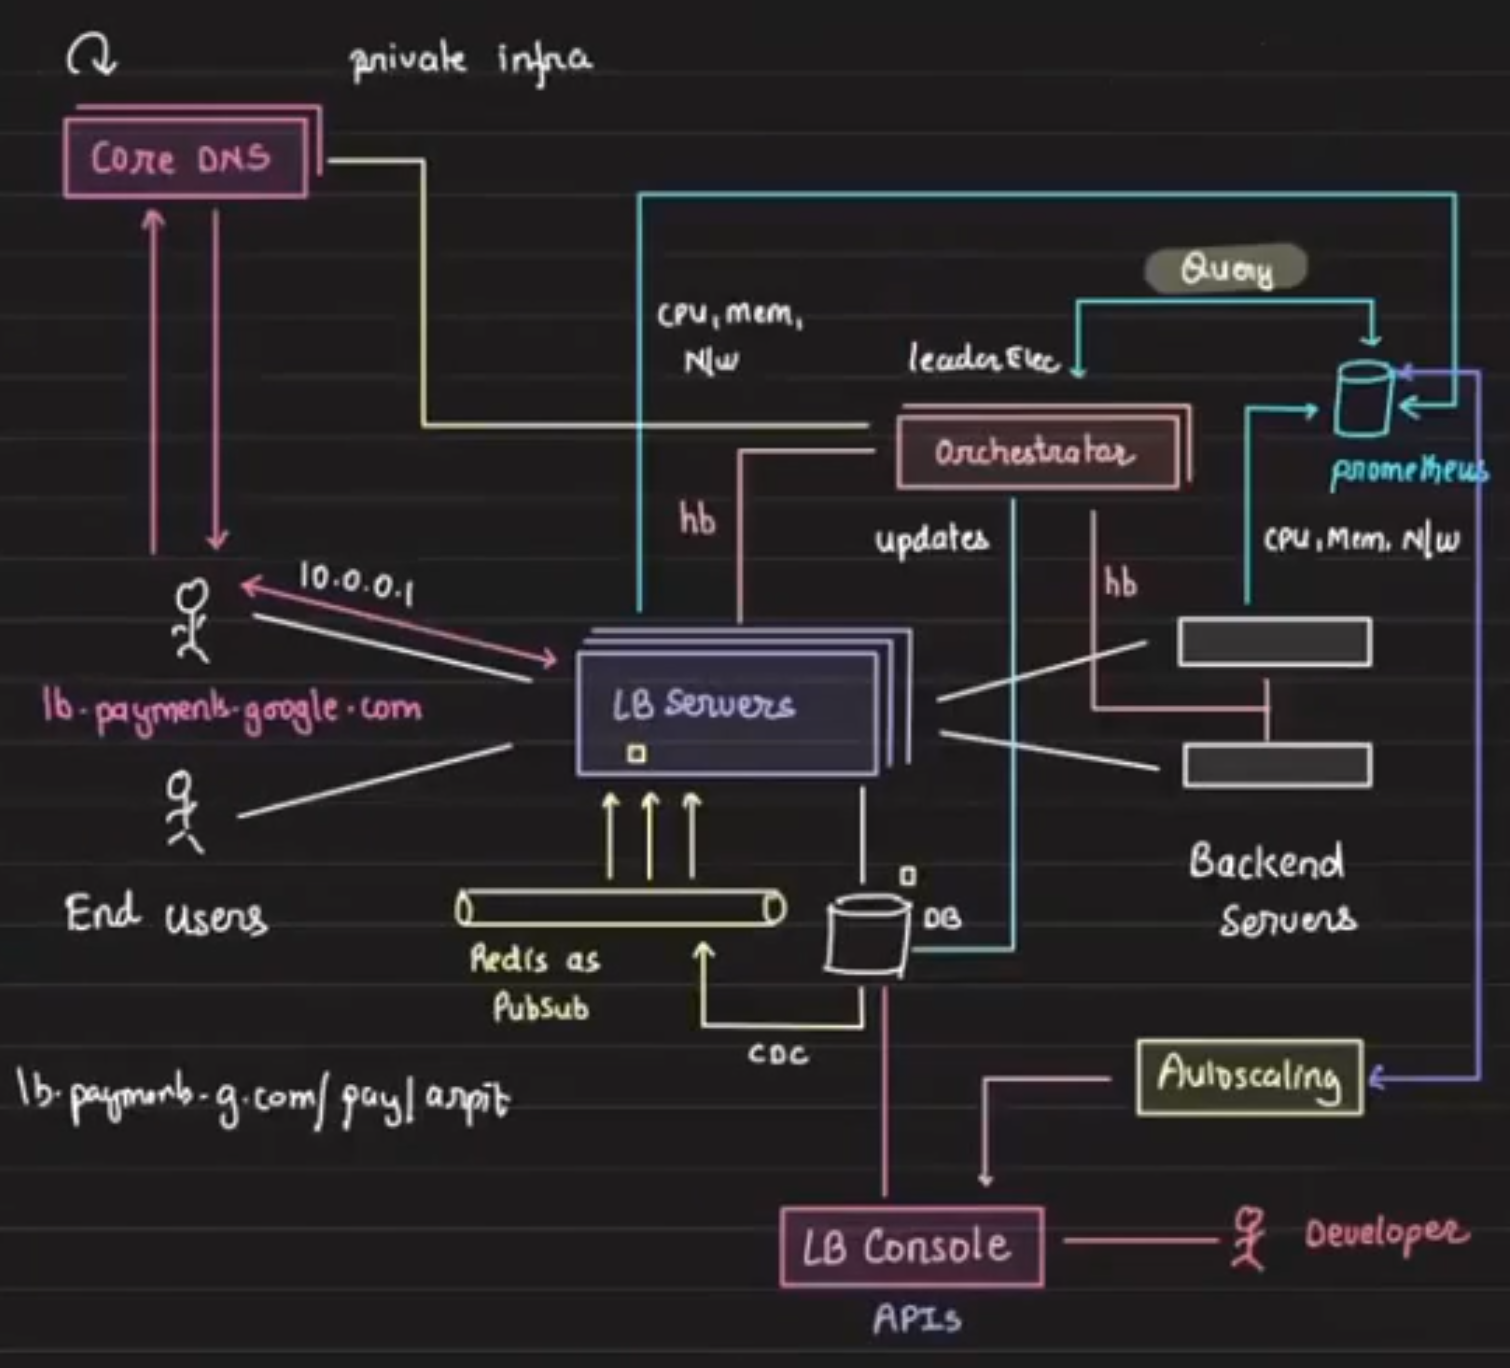 private infra
Core DNS
Query
CPU, mem,
N/w
leader Elec
Orchestrator
prometheus
hb
updates
CPU, Mem, N/w
hb
10.0.0.1
LB Servers
lb.payments.google.com
Backend
Servers
End Users
DB
Redis as
PubSub
CDC
lb.payments-g.com/pay/arpit
Autoscaling
LB Console
Developer
APIs